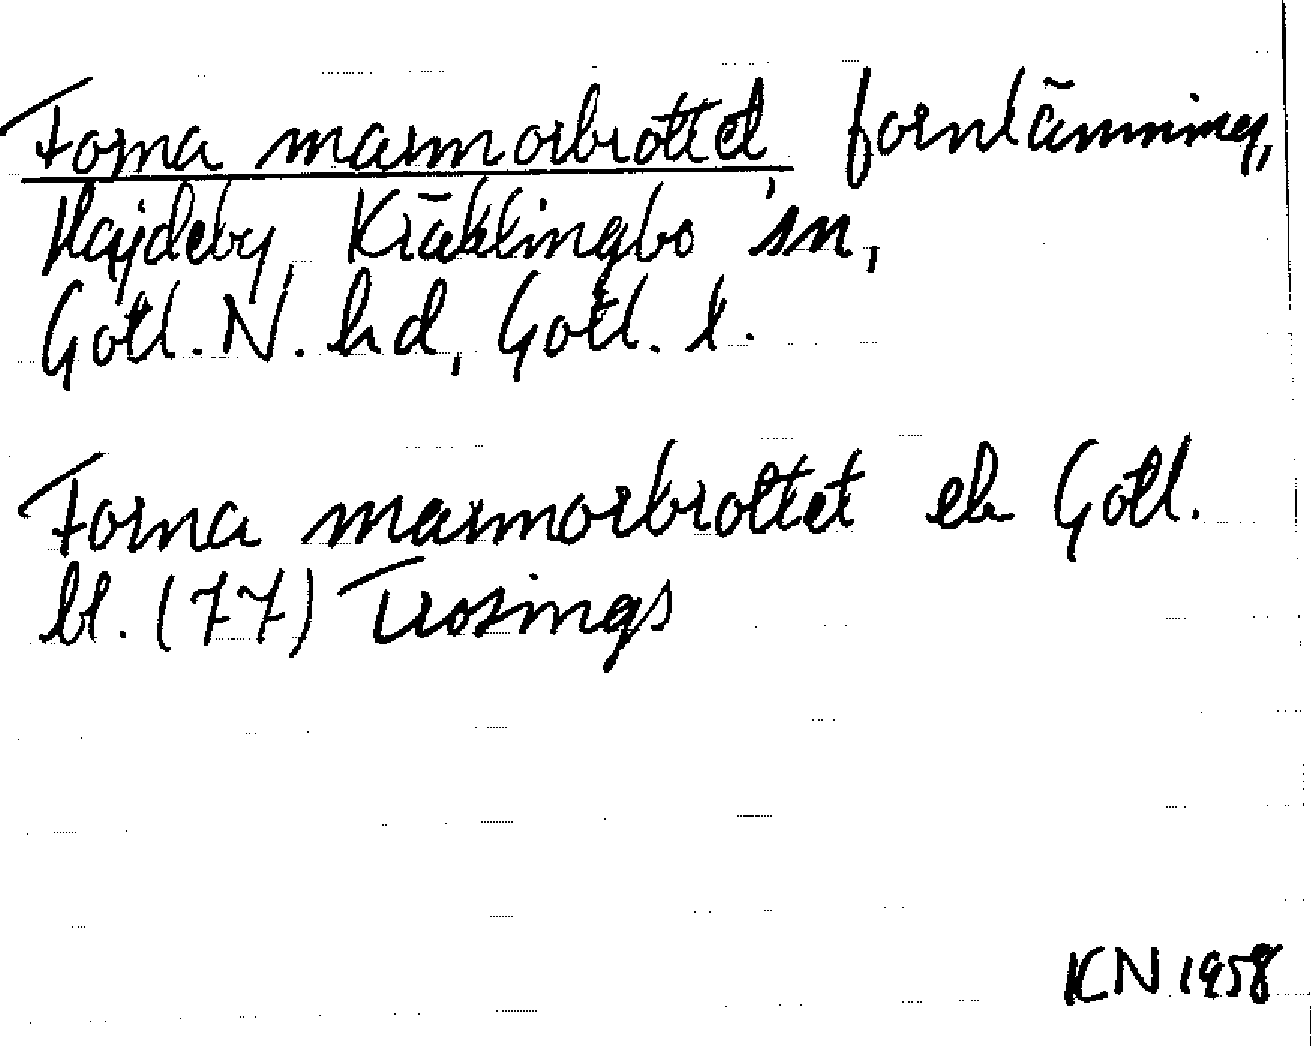 Forna marmorbrottet, fornlämning,
Hajdeby, Kräklingbo sn,
Gotl. N. hd, Gotl. l.
Forna marmorbrottet ek Gotl.
bl. (77) Trosings
KN 1958